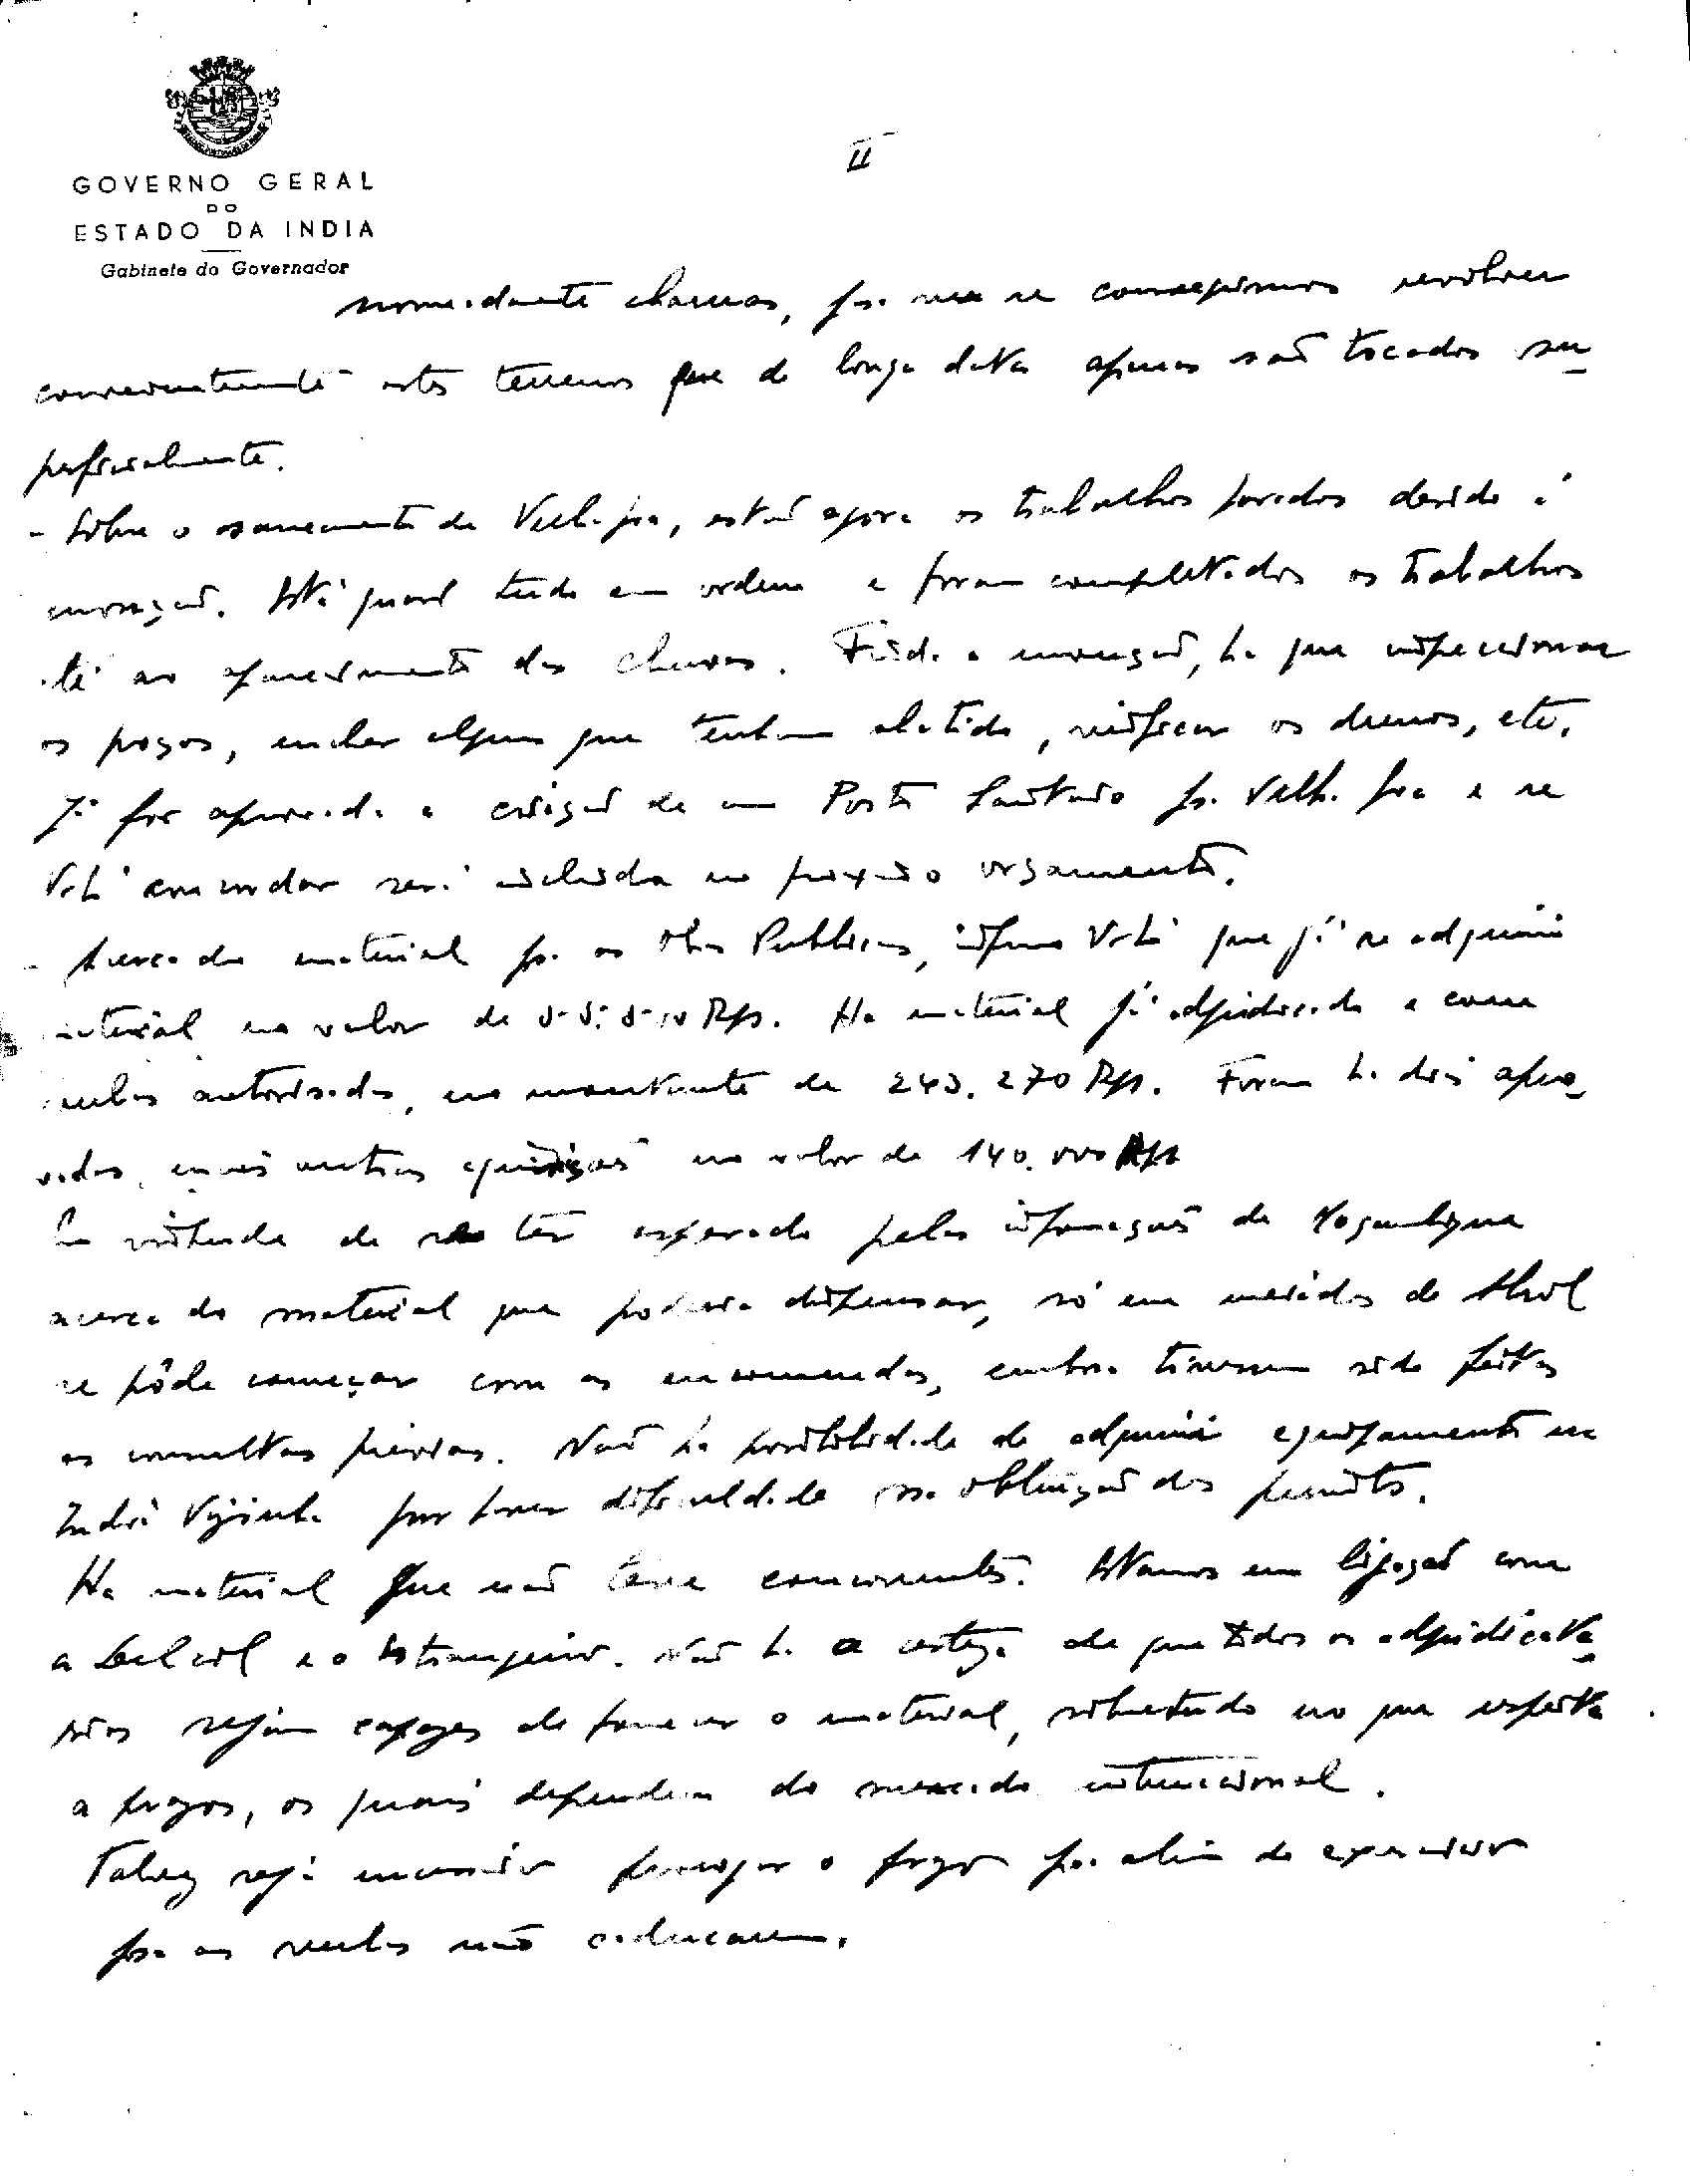 II
GOVERNO GERAL
DO
ESTADO DA INDIA
Gabinete do Governador
nomeadamente charruas, pa. ver se conseguimos revolver
convenientemente estes terrenos que de longa data apenas são tocados su-
perficialmente.
- Sôbre o saneamento de Velha Goa, estão agora os trabalhos parados devido á
monção. Está quasi tudo em ordem e foram completados os trabalhos
até ao aparecimento das chuvas. Finda a monção, ha que inspeccionar
os poços, encher algum que tenha abatido, verificar os drenos, etc.
Já foi aprovada a criação de um Posto Sanitário pa. Velha Goa e se
V. concordar será incluida no próximo orçamento.
- Acerca do material pa. as Obras Publicas, informo V. que já se adquiriu
material no valor de Rps. Ha material já adjudicado e com
verbas autorisadas, no montante de 243.270 Rps. Foram ha dias apro-
vadas mais outras aquisições no valor de 140.000 Rps
Em virtude de se ter esperado pelas informações de Moçambique
acerca do material que poderia dispensar, só em meiados de Abril
se pôde começar com as encomendas, embora tivessem sido feitas
as consultas prévias. Não ha possibilidade de adquirir equipamento na
India Visinha por haver dificuldade na obtenção dos permits.
Ha material que não teve concorrentes. Estamos em ligação com
a e o Estrangeiro. Não ha a certeza de que todos os adjudicatá-
rios sejam capazes de fornecer o material, sobretudo no que respeita
a prazos, os quais dependem do mercado internacional.
Talvez seja necessário prorrogar o prazo pa. além do exercicio
pa. as verbas não caducarem.